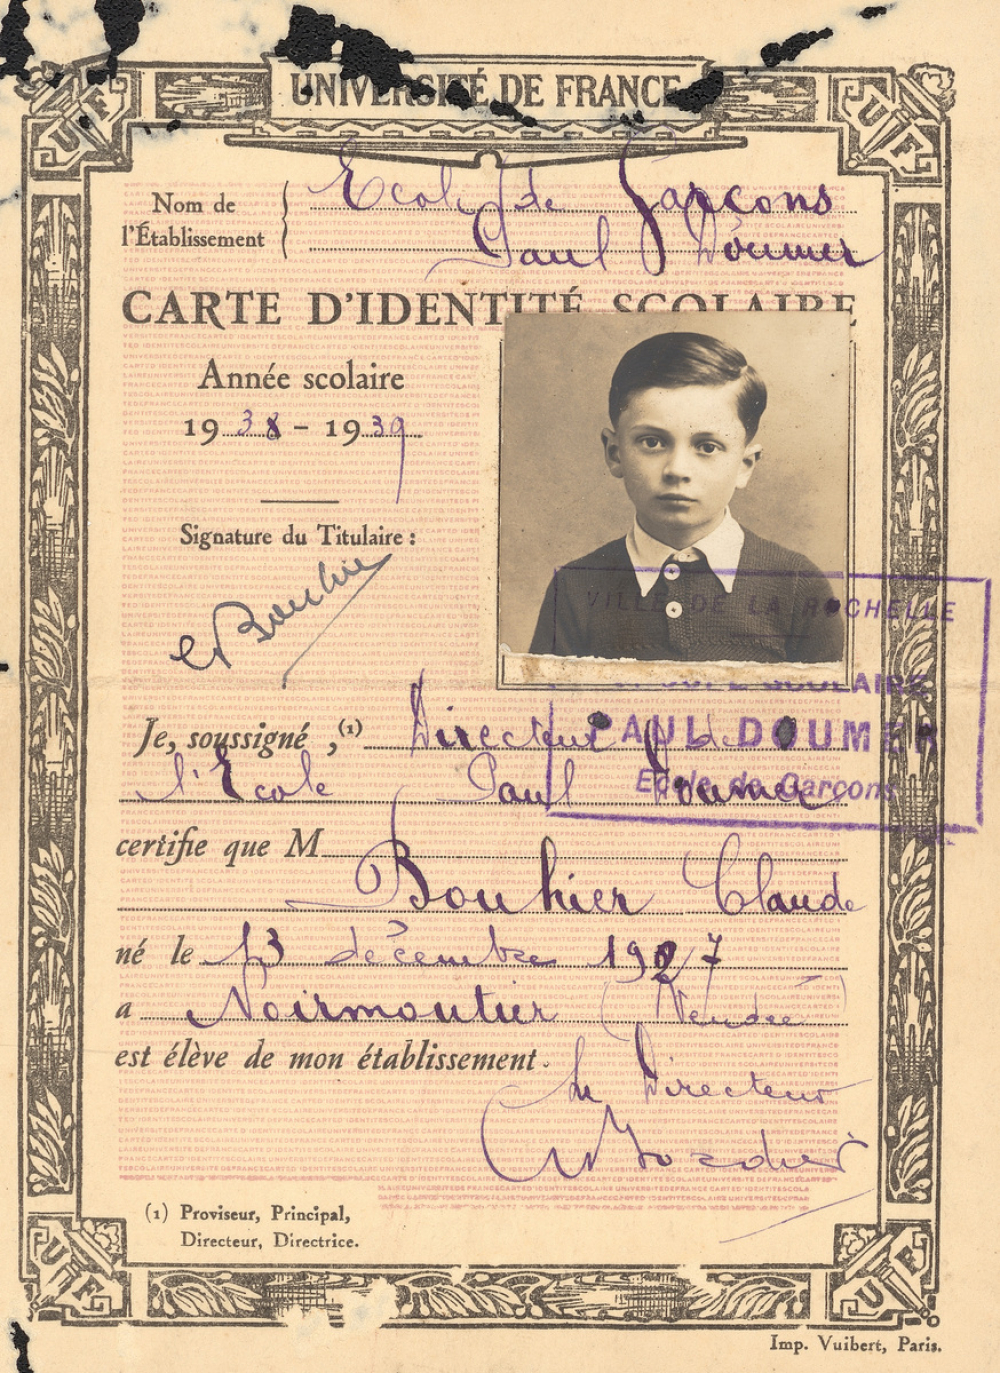 UNIVERSITÉ DE FRANCE
Nom de l'Établissement
Ecole de Garçons
Paul Doumer
CARTE D'IDENTITÉ SCOLAIRE
Année scolaire
1938 - 1939
Signature du Titulaire :
Bouhier
VILLE DE LA ROCHELLE
SCOLAIRE
PAUL DOUMER
Ecole de Garçons
Je, soussigné ,(1) Directeur de
l'Ecole Paul Doumer
certifie que M
Bouhier Claude
né le 13 décembre 1927
a Noirmoutier (Vendée)
est élève de mon établissement.
Le Directeur
(1) Proviseur, Principal,
Directeur, Directrice.
UF
UF
UF
UF
Imp. Vuibert, Paris.